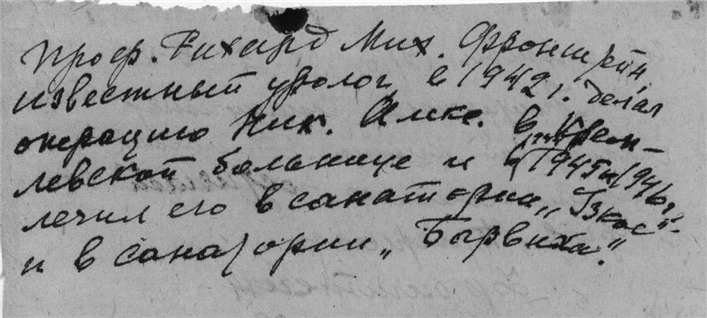 Проф. Рихард Мих. Фронштейн,
известный уролог, в 1942г. делал
операцию Ник. Алкс. в Крем-
левской больнице и 1945 и 1946г.
лечил его в санатории „
и в санатории „Барвиха."